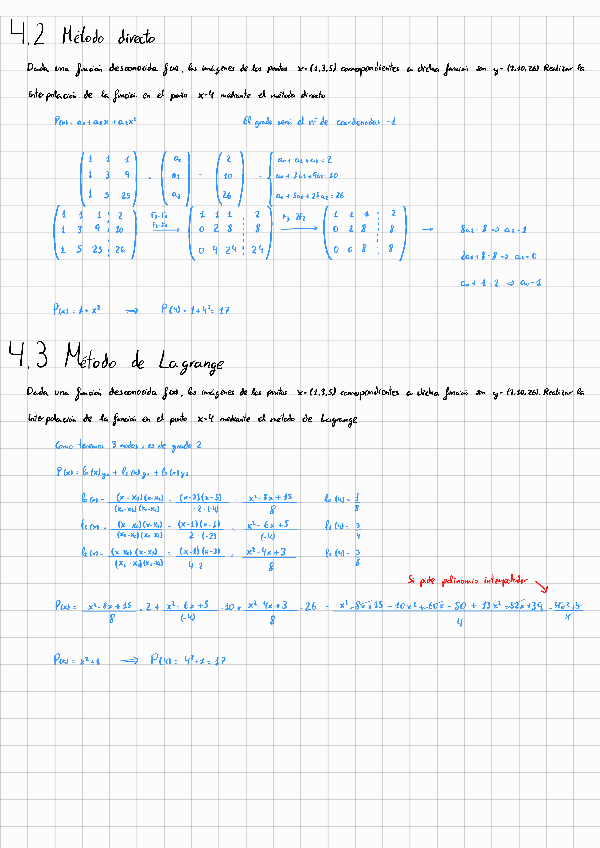 4.2 Método directo
Dada una función desconocida f(x), las imágenes de los puntos x=(1,3,5) correspondientes a dicha función son y=(2,10,26). Realizar la
interpolación de la función en el punto x=4 mediante el método directo
P(x)= a₀+a₁x+a₂x² El grado será el nº de coordenadas -1
( 1 1 1 ) ( a₀ ) ( 2 ) { a₀+a₁+a₂=2
( 1 3 9 ) · ( a₁ ) = ( 10 ) = { a₀+3a₁+9a₂=10
( 1 5 25 ) ( a₂ ) ( 26 ) { a₀+5a₁+25a₂=26
( 1 1 1 | 2 ) F₂-F₁ ( 1 1 1 | 2 ) F₃-2F₂ ( 1 1 1 | 2 )
( 1 3 9 | 10 ) F₃-F₁ → ( 0 2 8 | 8 ) → ( 0 2 8 | 8 ) → 8a₂=8 ⇒ a₂=1
( 1 5 25 | 26 ) ( 0 4 24 | 24 ) ( 0 0 8 | 8 ) 2a₁+8=8 ⇒ a₁=0
a₀+1=2 ⇒ a₀=1
P(x)=1+x² ⟹ P(4)=1+4²=17
4.3 Método de Lagrange
Dada una función desconocida f(x), las imágenes de los puntos x=(1,3,5) correspondientes a dicha función son y=(2,10,26). Realizar la
interpolación de la función en el punto x=4 mediante el método de Lagrange
Como tenemos 3 nodos, es de grado 2
P(x)= l₀(x)y₀ + l₁(x)y₁ + l₂(x)y₂
l₀(x)= (x-x₁)(x-x₂) / (x₀-x₁)(x₀-x₂) = (x-3)(x-5) / -2·(-4) = x²-8x+15 / 8 l₀(4)= 1/8
(x-x₀)(x-x₂) = (x-1)(x-5) / 2·(-2) = x²-6x+5 / (-4) l₁(4)= 3/4
l₂(x)= (x-x₀)(x-x₁) = (x-1)(x-3) / 4·2 = x²-4x+3 / 8 l₂(4)= 3/8
Si pide polinomio interpolador
P(x)= x²-8x+15 / 8 · 2 + x²-6x+5 / (-4) · 10 + x²-4x+3 / 8 · 26 = x²-8x+15-10x²+60x-50+13x²-52x+39 / 4 = 4x²+4
P(x)= x²+1 ⟹ P(4)= 4²+1=17